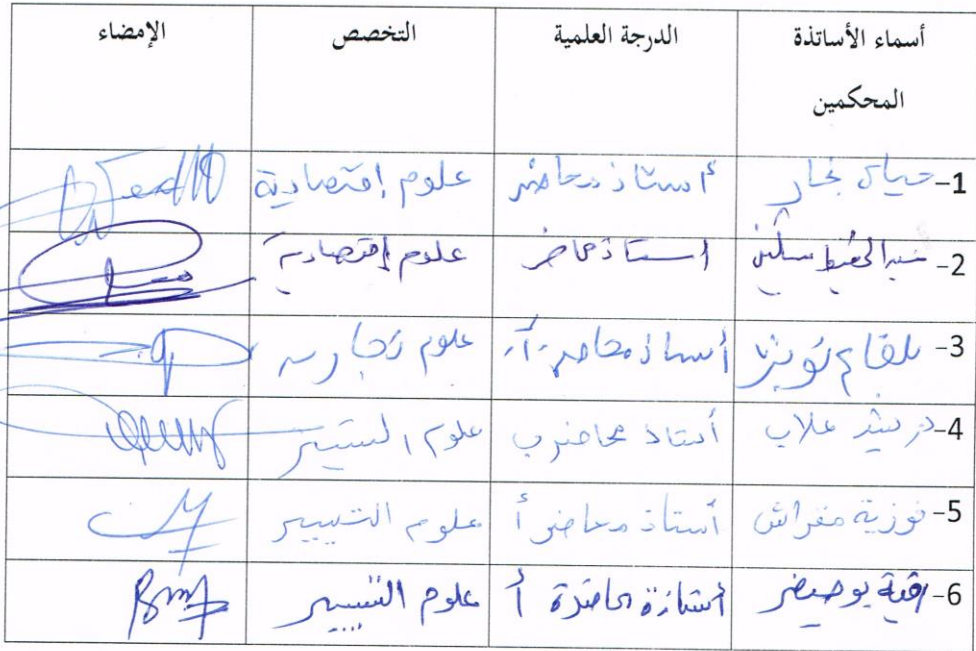 أسماء الأساتذة المحكمين الدرجة العلمية التخصص الإمضاء
1- حياة نجار أستاذ محاضر علوم إقتصادية
2- عبد الحفيظ سكين أستاذ محاضر علوم إقتصادية
3- بلقاسم تويزة أستاذ محاضر -أ- علوم تجارية
4- د رشيد علاب أستاذ محاضر ب علوم التسيير
5- فوزية مقراش أستاذ محاضر أ علوم التسيير
6- رقية بوحيضر أستاذة محاضرة أ علوم التسيير